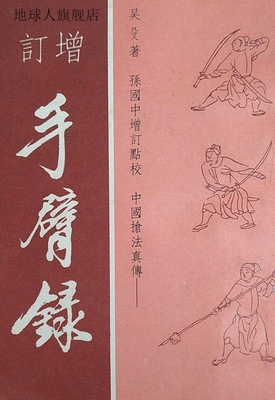 地球人旗舰店
增訂
手臂録
吴殳著 孫國中增訂點校 中國槍法真傳——